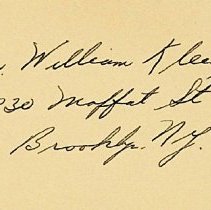 William Klee
930 Moffat St
Brooklyn. N.Y.